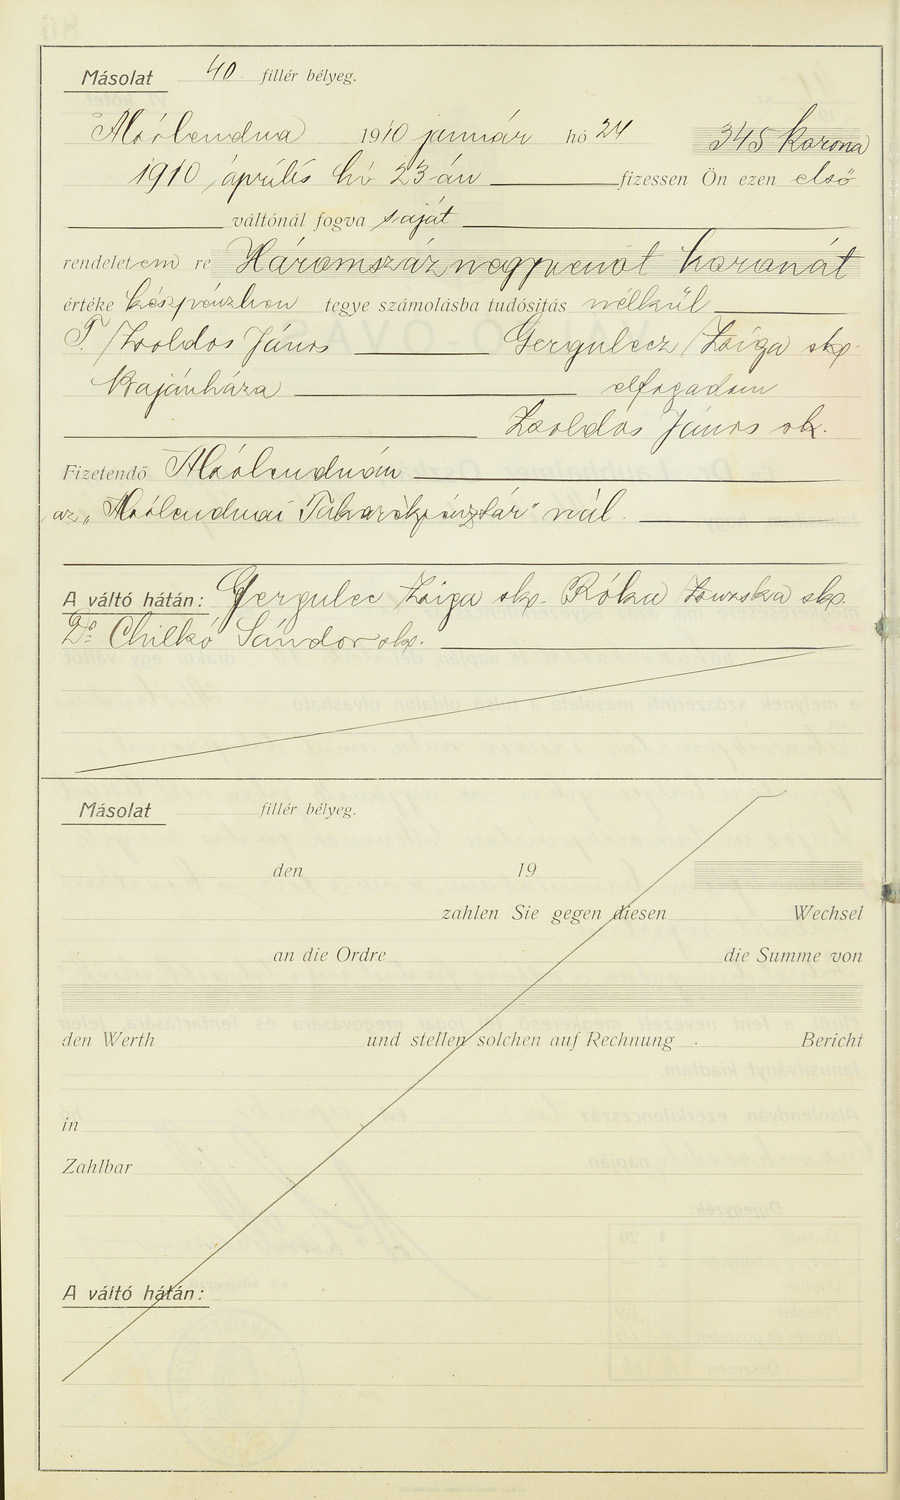 Másolat 40 fillér bélyeg.
Alsólendva 1910 január hó 24 345 korona
1910 április hó 23 án fizessen Ön ezen első
váltónál fogva saját
rendeletem re Háromszáz negyvenöt koronát
értéke készpénzben tegye számolásba tudósítás nélkül
T. Zsoldos János Gergulecz Zsiga skp.
elfogadom
Zsoldos János sk.
Fizetendő Alsólendván
az „Alsólendvai Takarékpénztár" nál.
A váltó hátán: Gergulec Zsiga skp. Róka skp.
Dr Sándor skp.
Másolat fillér bélyeg.
den 19
zahlen Sie gegen diesen Wechsel
an die Ordre die Summe von
den Werth und stellen solchen auf Rechnung Bericht
in
Zahlbar
A váltó hátán: